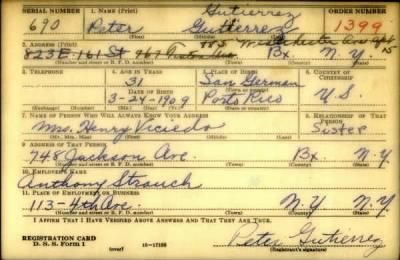 SERIAL NUMBER 1. NAME (Print) Gutierrez ORDER NUMBER
690 Peter Gutierrez 1399
(First) (Middle) (Last)
2. ADDRESS (Print) 885 Westchester Ave apt 15
823 E. 161 St Bx. N.Y.
(Number and street or R. F. D. number) (Town) (County) (State)
3. TELEPHONE 4. AGE IN YEARS 5. PLACE OF BIRTH 6. COUNTRY OF CITIZENSHIP
31 San German
DATE OF BIRTH (Town or county)
3-24-1909 Porto Rico U.S.
(Exchange) (Number) (Mo.) (Day) (Yr.) (State or country)
7. NAME OF PERSON WHO WILL ALWAYS KNOW YOUR ADDRESS 8. RELATIONSHIP OF THAT PERSON
Mrs. Henry Viciedo Sister
(Mr., Mrs., Miss) (First) (Middle) (Last)
9. ADDRESS OF THAT PERSON
748 Jackson Ave. Bx. N.Y.
(Number and street or R. F. D. number) (Town) (County) (State)
10. EMPLOYER'S NAME
Anthony Strauch
11. PLACE OF EMPLOYMENT OR BUSINESS
113-4th Ave. N.Y. N.Y.
(Number and street or R. F. D. number) (Town) (County) (State)
I AFFIRM THAT I HAVE VERIFIED ABOVE ANSWERS AND THAT THEY ARE TRUE.
REGISTRATION CARD Peter Gutierrez
D. S. S. Form 1 (over) 16-17105 (Registrant's signature)